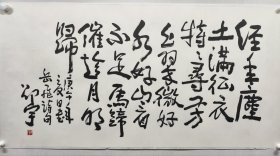 經年塵
土滿征衣
特特尋芳
上翠微好
水好山看
不足馬蹄
催趁月明
歸
岳飛詩句